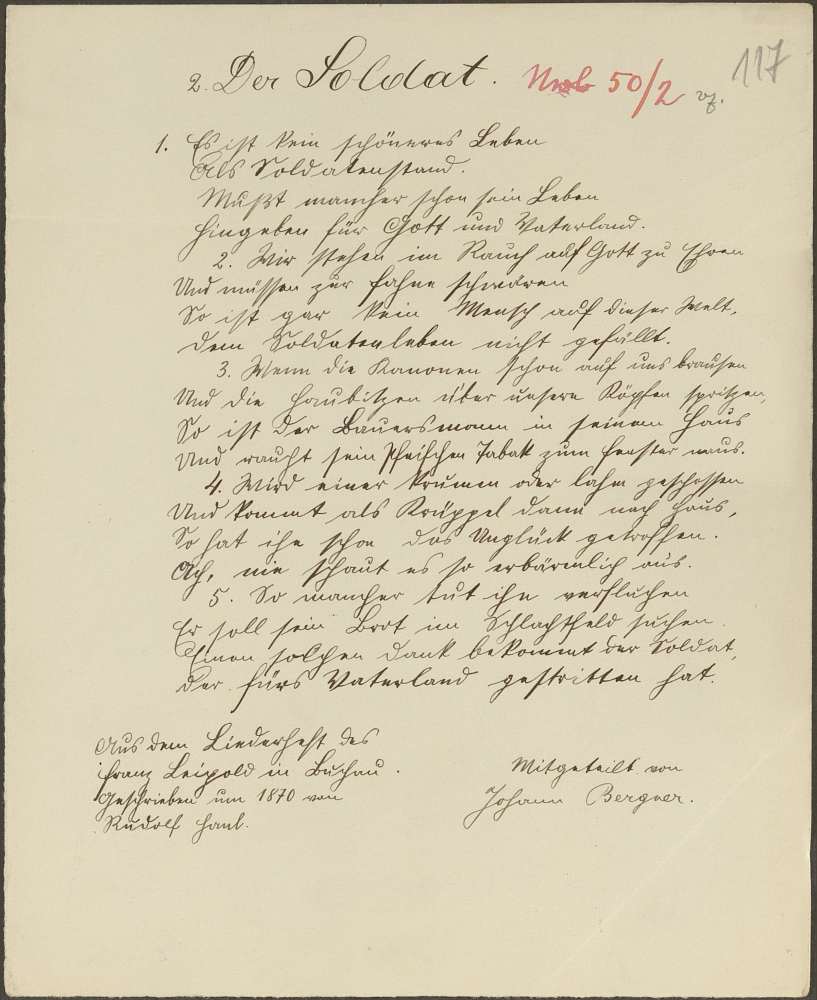 2. Der Soldat. 50/2 117
1. Es ist kein schöneres Leben
Als Soldatenstand.
Mußt mancher schon sein Leben
Hingeben für Gott und Vaterland.
2. Wir stehen im Rauch auf Gott zu Ehren
Und müssen zur Fahne schwören
So ist gar kein Mensch auf dieser Welt,
Dem Soldatenleben nicht gefällt.
3. Wenn die Kanonen schon auf uns brausen
Und die Haubitzen über unsere Köpfen spritzen,
So ist der Bauersmann in seinem Haus
Und raucht sein Pfeifchen Tabak zum Fenster naus.
4. Wird einer krumm oder lahm geschossen
Und kommt als Krüppel dann nach Haus,
So hat ihn schon das Unglück getroffen.
Ach, wie schaut es so erbärmlich aus.
5. So mancher tut ihn verfluchen
Er soll sein Brot im Schlachtfeld suchen.
Einen solchen Dank bekommt der Soldat,
Der fürs Vaterland gestritten hat.
Aus dem Liederheft des
Franz Leipold in Buchau.
Geschrieben um 1870 von
Rudolf Haul.
Mitgeteilt von
Johann Bergner.